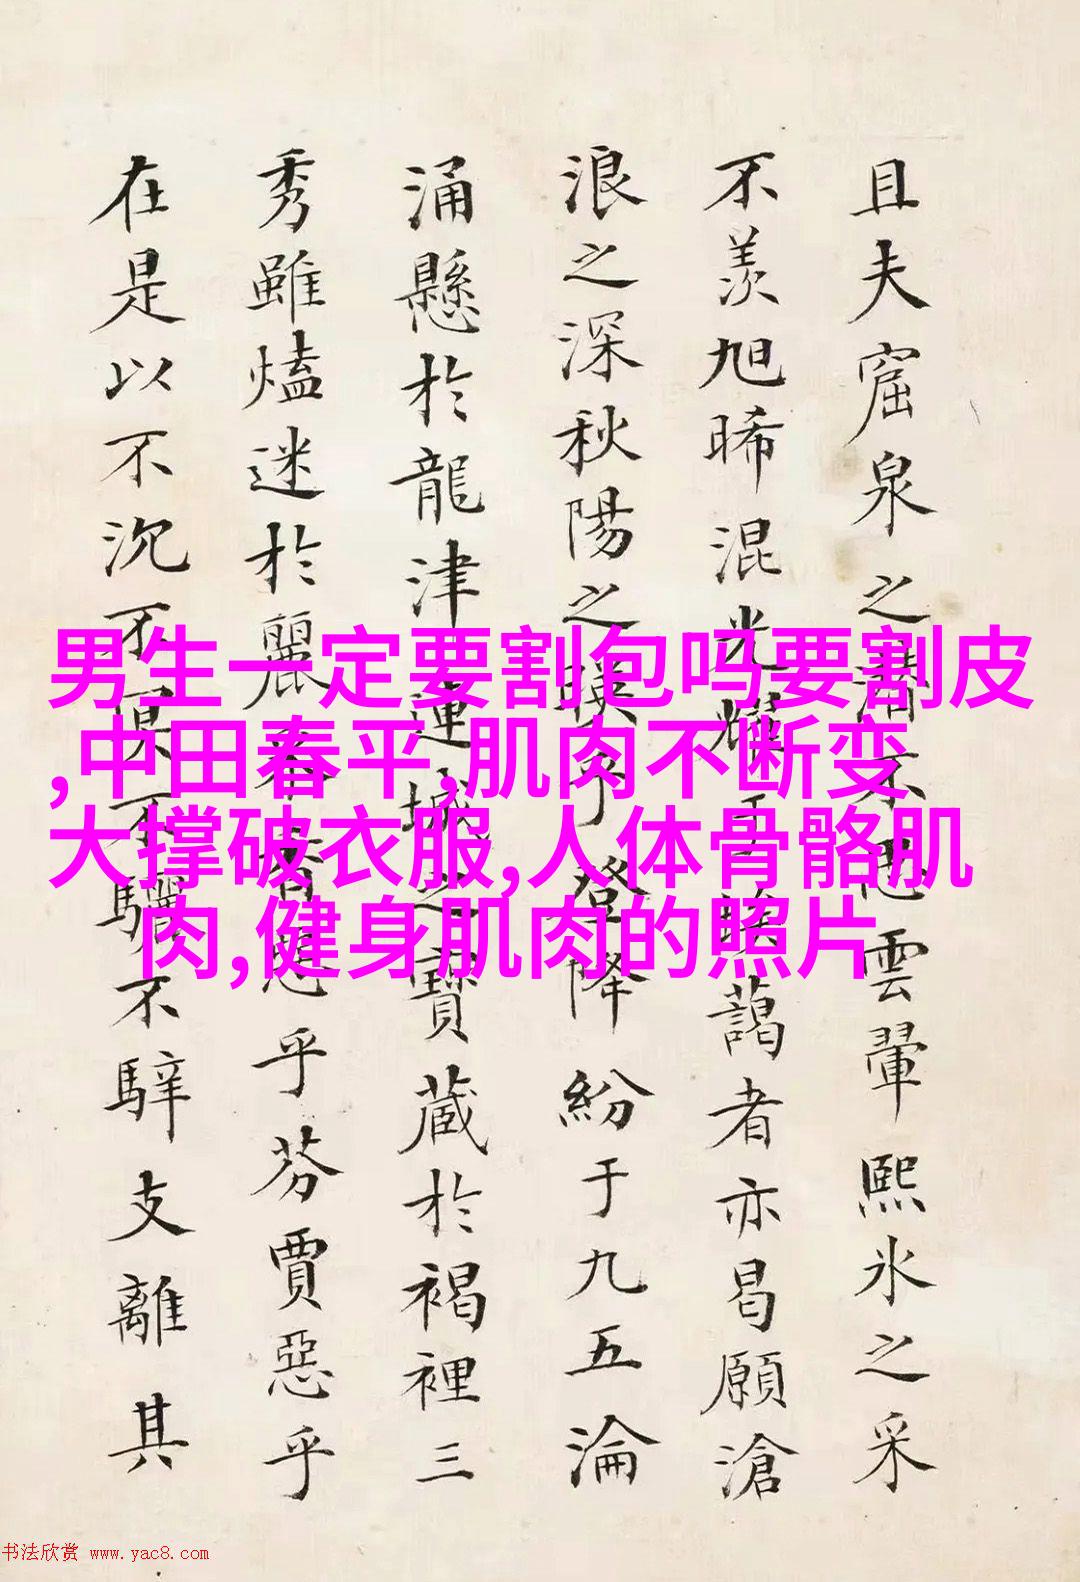 且夫窟泉之潛不思雲翬熙冰之采
不羨旭晞混光耀于埃藹者亦曷願滄
浪之深秋陽之映乎登降紛于九五淪
涌懸於龍津連城之寶藏於褐裡三
秀雖熆迷於麗香惡乎芬賈惡乎
在是以不沉不不驪不騂支離其
男生一定要割包吗要割皮
,中田春平,肌肉不断变
大撑破衣服,人体骨骼肌
肉,健身肌肉的照片
书法欣赏 www.yac8.com